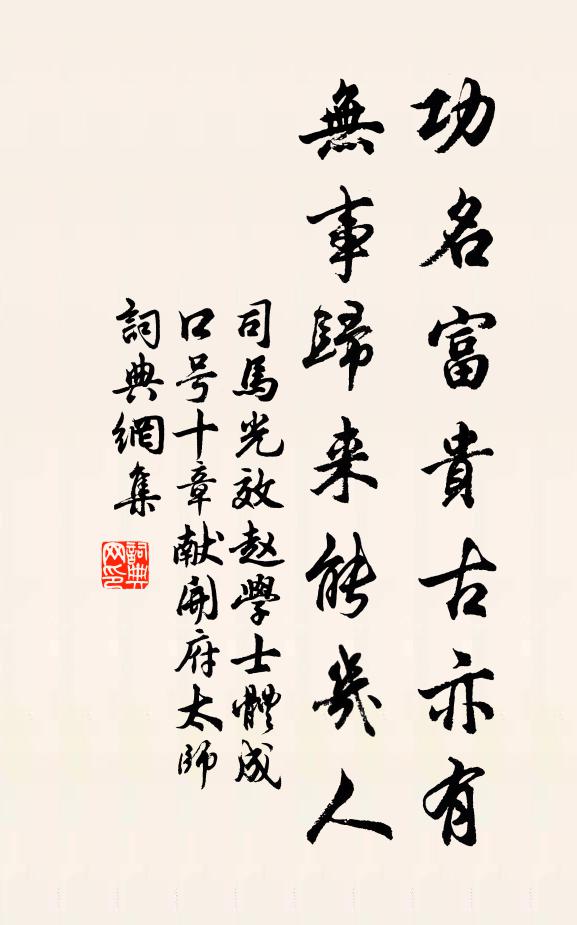 功名富貴古亦有
無事歸来能幾人
司馬光效赵學士體成
口号十章献開府太師
詞典網集
詞典网印